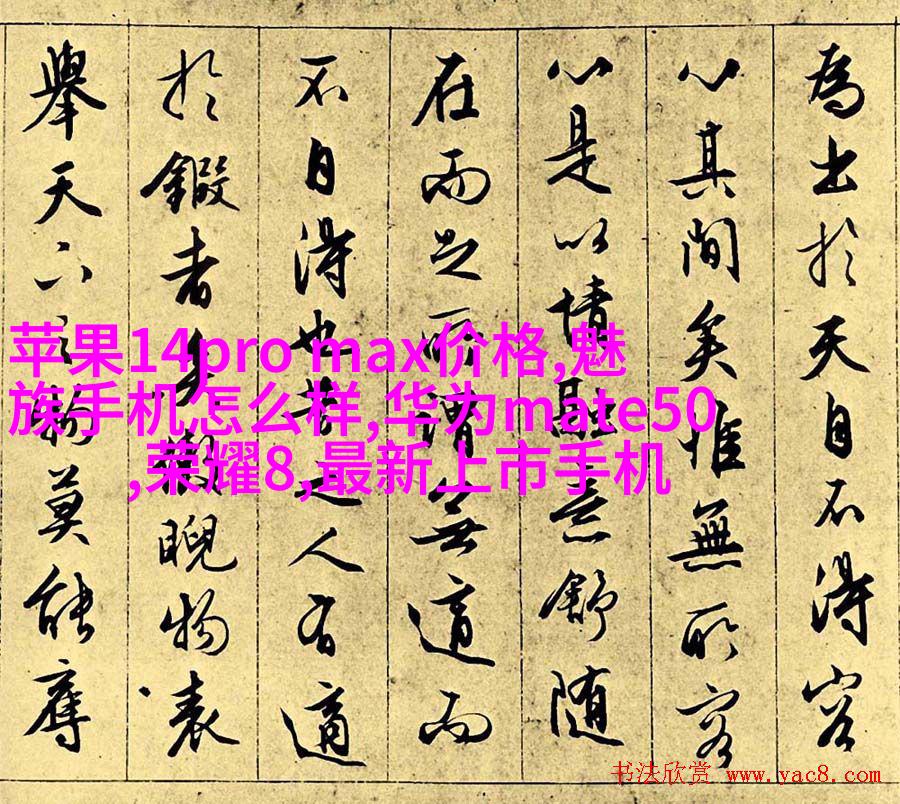 為出於天自不得容
心其間矣惟無所容
心是以情融意舒随
在而足所謂無適而
不自得也昔之人有適
於鍜者矣傲睨物表
舉天下之物莫能奪
苹果14pro max价格,魅
族手机怎么样,华为mate50
,荣耀8,最新上市手机
书法欣赏 www.yac8.com